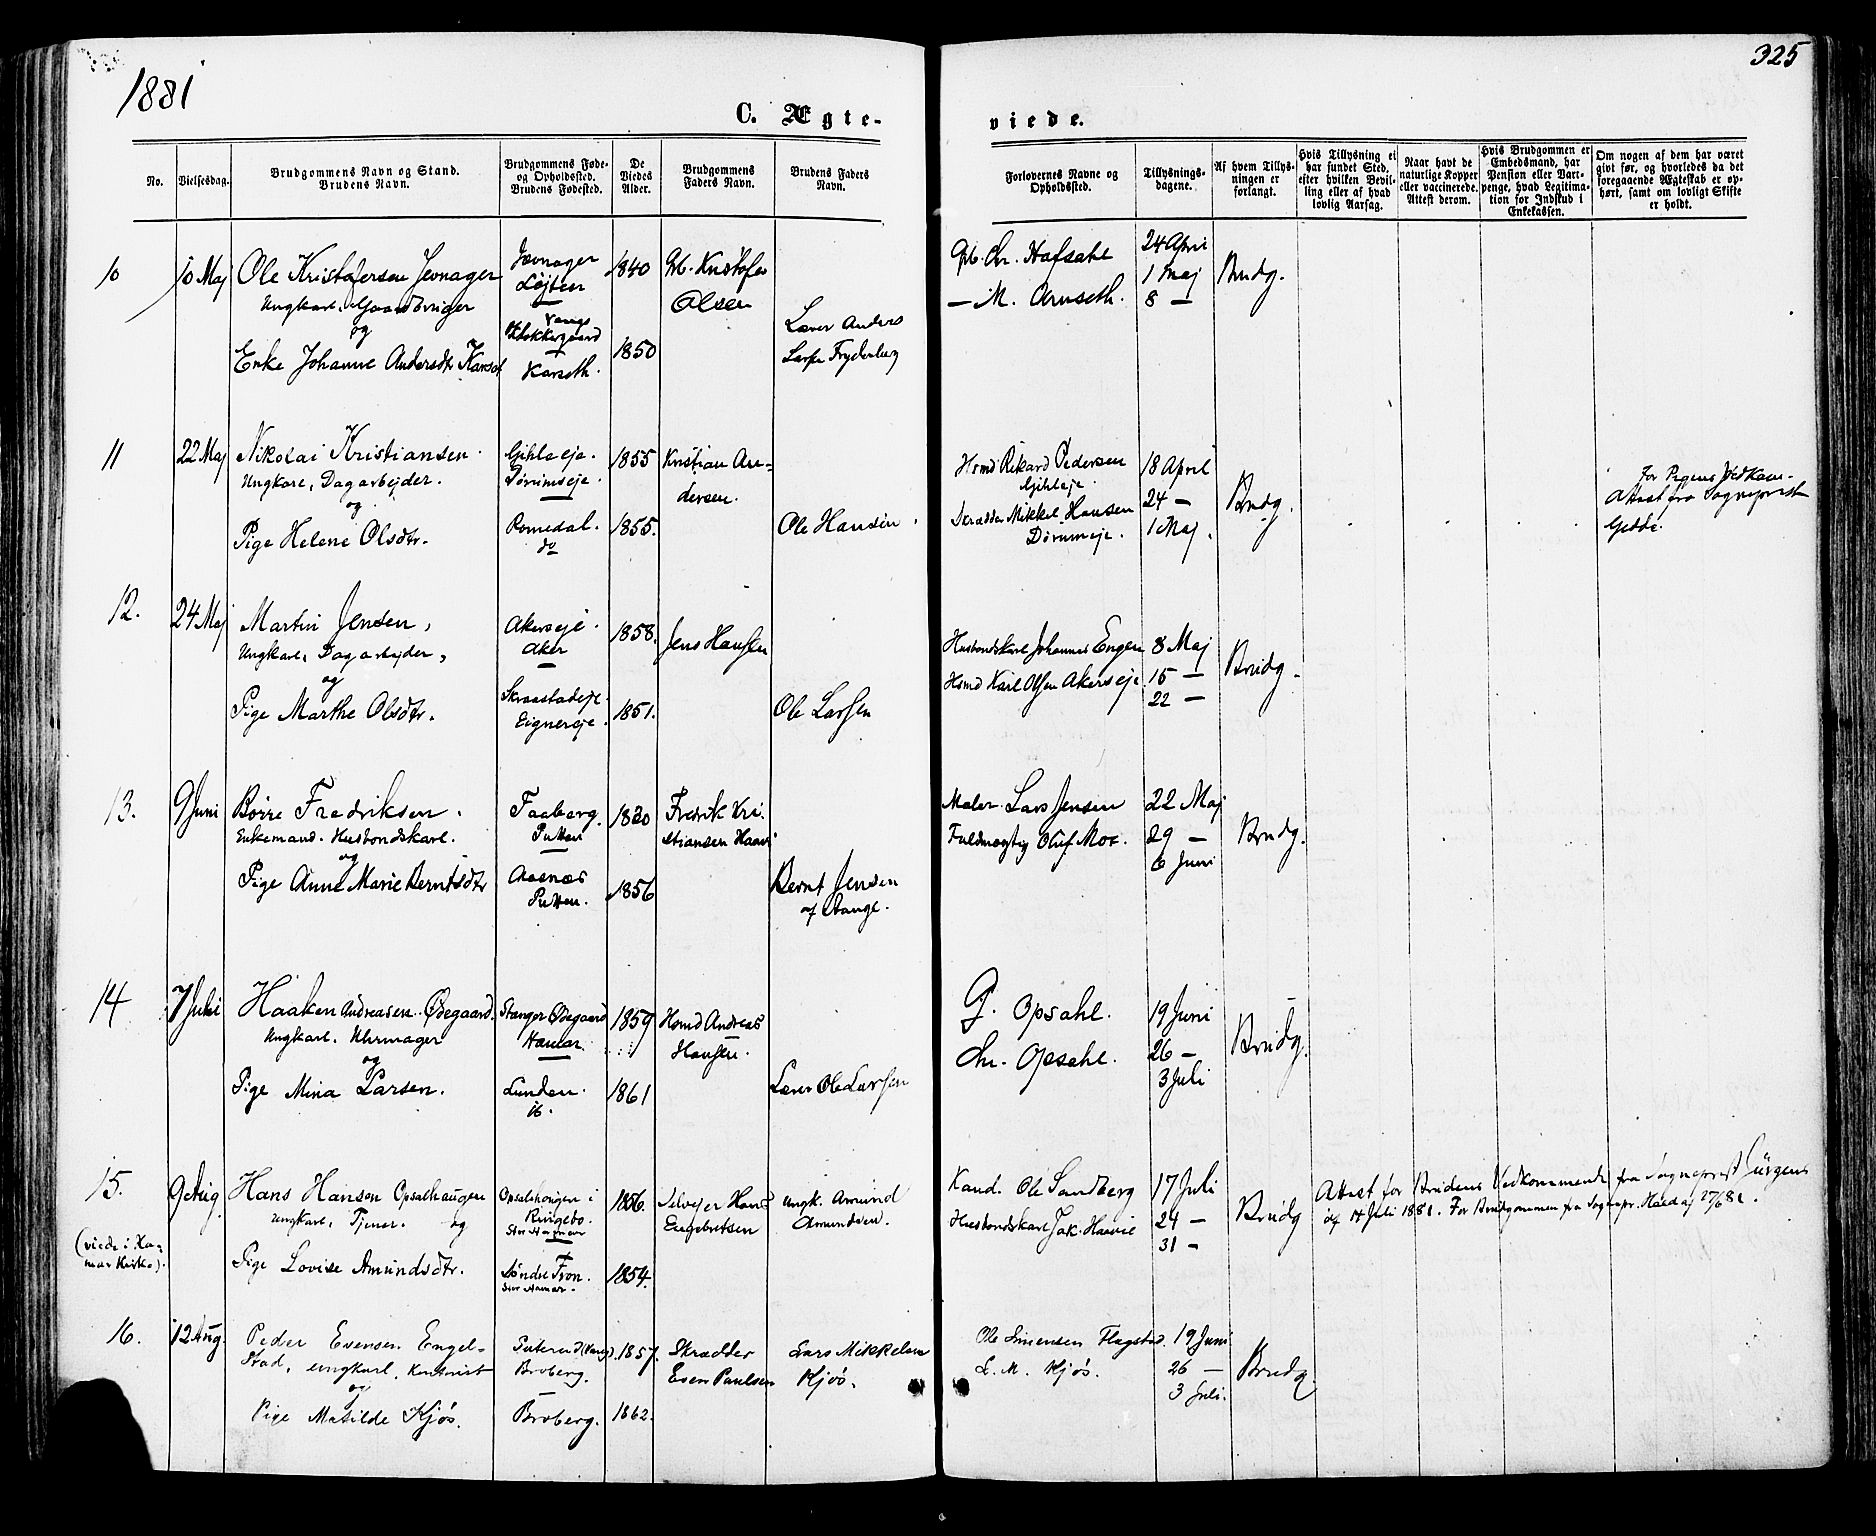 1881
325
C. Ægte-
viede.
No.
Vielsesdag.
Brudgommens Navn og Stand.
Brudens Navn.
Brudgommens Føde-
og Opholdsted.
Brudens Fødested.
De
Viedes
Alder.
Brudgommens
Faders Navn.
Brudens Faders
Navn.
Forlovernes Navne og
Opholdssted.
Tillysnings-
dagene.
Af hvem Tillys-
ningen er
forlangt.
Hvis Tillysning ei
har fundet Sted,
efter hvilken Bevil-
ling eller af hvad
lovlig Aarsag.
Naar havt de
naturlige Kopper
eller vaccinerede.
Attest derom.
Hvis Brudgommen er
Embedsmand, har
Pension eller Vart-
penge, hvad Legitima-
tion for Indskud i
Enkekassen.
Om nogen af dem har været
givt før, og hvorledes da det
foregaaende Ægteskab er op-
hørt, samt om lovligt Skifte
er holdt.
10
10 Maj
Ole Kristofersen Jevnager
Ungkarl, Gaardbruger
og
Enke Johanne Andersdtr
Jevnager
Løjten
Vangs
Klokkergaard
Karseth.
1840
1850
Gb. Kristofer
Olsen
Lærer Anders
Larsen Frydenberg
Gb. Chr. Hafsahl
— M. Arnseth.
24 April
1 Maj
8 —
Brudg.
11
22 Maj
Nikolai Kristiansen.
Ungkarl, Dagarbejder.
og
Pige Helene Olsdtr.
Gihleeje.
Dørumseje.
Romedal.
do
1855
1855.
Kristian An-
dersen.
Ole Hansen.
Hsmd Rikard Pedersen
Gihleeje.
Skrædder Mikkel Hansen
Dørumeje.
18 April
24 —
1 Maj.
Brudg.
For Pigens Vedkom-
Attest fra Sogneprest
Gedde.
12.
24 Maj
Martin Jensen,
Ungkarl, Dagarbejder,
og
Pige Marthe Olsdtr.
Akerseje.
Aker
Skraastadeje
Eignereje.
1858.
1851.
Jens Hansen
Ole Larsen
Husbondskarl Johannes Engen
Hsmd Karl Olsen Akerseje.
8 Maj
15 —
22 —
Brudg.
13.
9 Juni
Børre Fredriksen.
Enkemand. Husbondskarl.
og
Pige Anne Marie Berntsdtr
Faaberg.
Putten
Aasnæs
Putten.
1830
1856
Fredrik Kri-
stiansen
Bernt Jensen
af Stange.
Maler Lars Jensen
Fuldmægtig Oluf Moe.
22 Maj
29 —
6 Juni
Brudg.
14
7 Juli
Haaken Andreasen Ødegaard.
Ungkarl. Uhrmager
og
Pige Mina Larsen.
Stanger Ødegaard
Hamar.
Lunden.
ib.
1859
1861
Hsmd Andreas
Hansen.
Lærer Ole Larsen
G. Opsahl.
Chr. Opsahl.
19 Juni
26 —
3 Juli
Brudg.
15.
9 Aug
(viede i Ha-
mar Kirke).
Hans Hansen Opsalhaugen
Ungkarl, Tjener. og
Pige Lovise Amundsdtr.
Opsalhougen i
Ringebo.
Stor Hamar
Søndre Fron.
Stor Hamar.
1856.
1854.
Selvejer Hans
Engebretsen
Ungk. Amund
Amundsen.
Kand. Ole Sandberg
Husbondskarl Jak. Haavie
17 Juli
24 —
31 —
Brudg
Attest for Brudens Vedkommende fra Sogneprest Jürgens
af 14 Juli 1881. For Brudgommen fra Sognepr. af 27/6 81.
16.
12 Aug.
Peder Evensen Engel-
stad, ungkarl,
og
Pige Matilde Kjøs.
(Vang).
Broberg.
Broberg.
1857.
1862.
Skrædder
Even Paulsen
Lars Mikkelsen
Kjøs.
Ole Simensen Flagstad.
L. M. Kjøs.
19 Juni
26 —
3 Juli.
Brudg